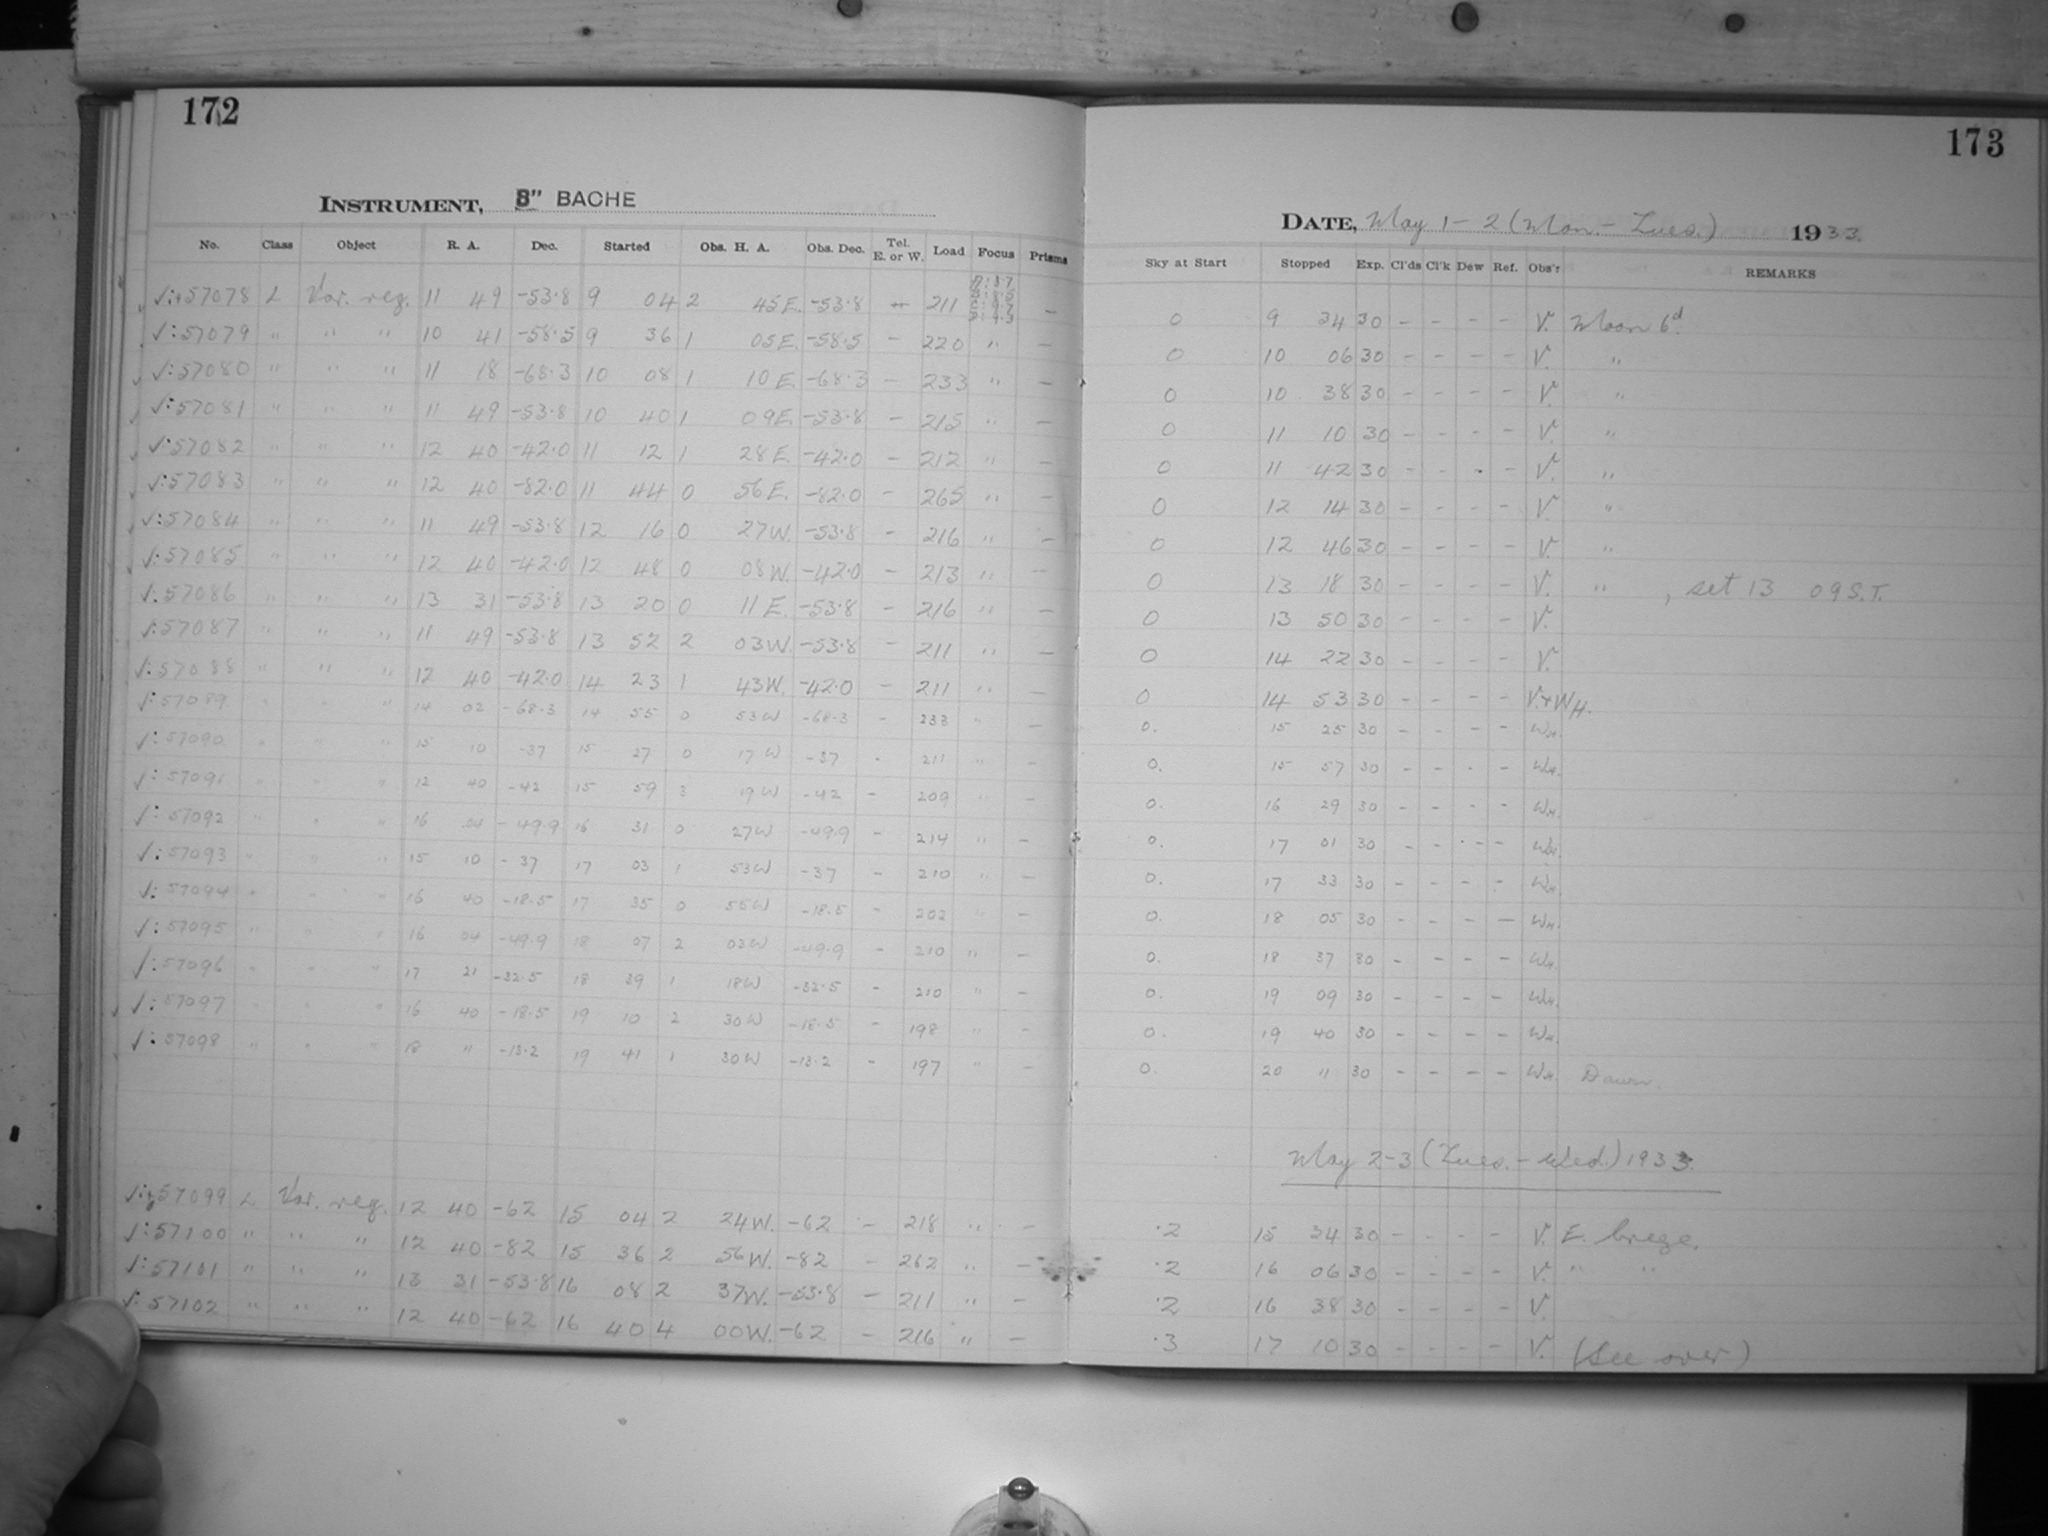 172
INSTRUMENT, 8" BACHE
No. Class Object R. A. Dec. Started Obs. H. A. Obs. Dec. Tel. E. or W. Load Focus Prisms
57078 L Var. reg. 11 49 -53.8 9 04 2 45 E. -53.8 211 –
57079 " " " 10 41 -58.5 9 36 1 05 E. -58.5 – 220 " –
57080 " " " 11 18 -68.3 10 08 1 10 E. -68.3 – 233 " –
57081 " " " 11 49 -53.8 10 40 1 09 E. -53.8 – 215 " –
57082 " " " 12 40 -42.0 11 12 1 28 E. -42.0 – 212 " –
57083 " " " 12 40 -82.0 11 44 0 56 E. -82.0 – 265 " –
57084 " " " 11 49 -53.8 12 16 0 27 W. -53.8 – 216 " –
57085 " " " 12 40 -42.0 12 48 0 08 W. -42.0 – 213 " –
57086 " " " 13 31 -53.8 13 20 0 11 E. -53.8 – 216 " –
57087 " " " 11 49 -53.8 13 52 2 03 W. -53.8 – 211 " –
57088 " " " 12 40 -42.0 14 23 1 43 W. -42.0 – 211 " –
57089 " " " 14 02 -68.3 14 55 0 53 W -68.3 – 233 " –
57090 " " " 15 10 -37 15 27 0 17 W -37 - 211 " –
57091 " " " 12 40 -42 15 59 3 19 W -42 – 209 " –
57092 " " " 16 04 -49.9 16 31 0 27 W -49.9 – 214 " –
57093 " " " 15 10 -37 17 03 1 53 W -37 – 210 " –
57094 " " " 16 40 -18.5 17 35 0 55 W -18.5 – 202 " –
57095 " " " 16 04 -49.9 18 07 2 03 W -49.9 – 210 " –
57096 " " " 17 21 -32.5 18 39 1 18 W -32.5 – 210 " –
57097 " " " 16 40 -18.5 19 10 2 30 W -18.5 – 198 " –
57098 " " " 18 11 -13.2 19 41 1 30 W -13.2 – 197 " –
57099 L Var. reg. 12 40 -62 15 04 2 24 W. -62 – 218 " –
57100 " " " 12 40 -82 15 36 2 56 W. -82 – 262 " –
57101 " " " 13 31 -53.8 16 08 2 37 W. -53.8 – 211 " –
57102 " " " 12 40 -62 16 40 4 00 W. -62 – 216 " –
173
DATE, May 1 - 2 (Mon. - Tues.) 1933.
Sky at Start Stopped Exp. Cl'ds Cl'k Dew Ref. Obs'r REMARKS
0 9 34 30 – – – – V. Moon 6d.
0 10 06 30 – – – – V. "
0 10 38 30 – – – – V. "
0 11 10 30 – – – – V. "
0 11 42 30 – – - – V. "
0 12 14 30 – – – – V. "
0 12 46 30 – – – – V. "
0 13 18 30 – – – – V. " , set 13 09 S.T.
0 13 50 30 – – – – V.
0 14 22 30 – – – – V.
0 14 53 30 – – – – V. + WH.
0. 15 25 30 – – – – WH.
0. 15 57 30 – – – – WH.
0. 16 29 30 – – – – WH.
0. 17 01 30 – – – – WH.
0. 17 33 30 – – – – WH.
0. 18 05 30 – – – – WH.
0. 18 37 30 – – – – WH.
0. 19 09 30 – – – – WH.
0. 19 40 30 – – – – WH.
0. 20 11 30 – – – – WH. Dawn.
May 2-3 (Tues. - Wed.) 1933.
.2 15 34 30 – – – – V. E. breeze.
.2 16 06 30 – – – – V. " "
.2 16 38 30 – – – – V.
.3 17 10 30 – – – – V. (See over)